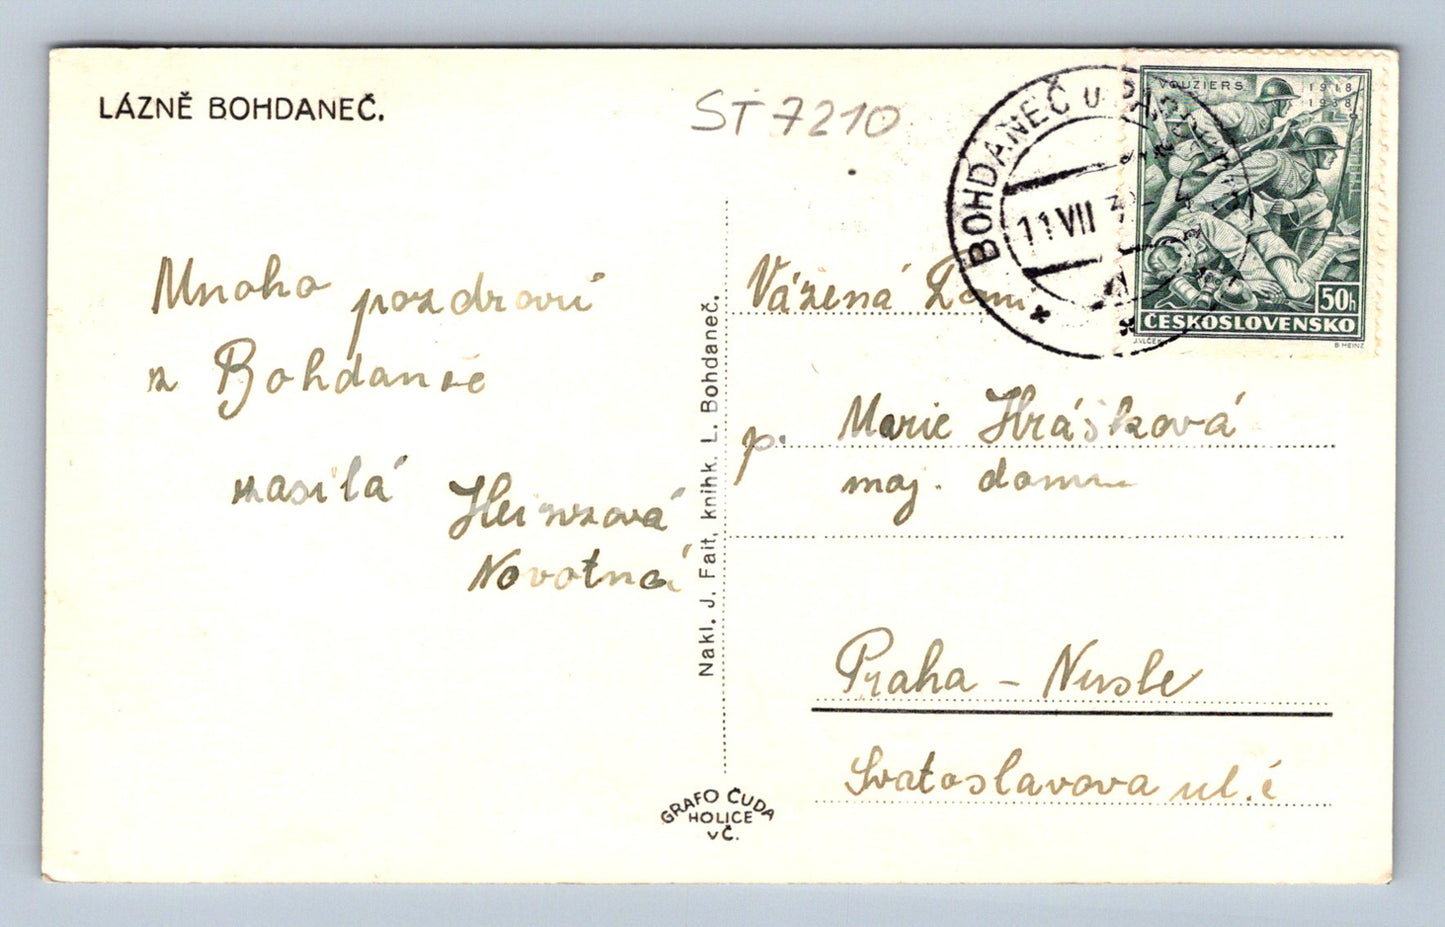 LÁZNĚ BOHDANEČ.
ST 7210
BOHDANEČ U
11 VII
VOUZIERS
1918
1938
50h
ČESKOSLOVENSKO
J.VLČEK
B HEINZ
Mnoho pozdravů
z Bohdanče
zasílá
Novotná
Nakl. J. Fait, knihk. L. Bohdaneč.
GRAFO ČUDA
HOLICE
v Č.
Vážená
p. Marie Hrášková
maj. domu
Praha – Nusle
Svatoslavova ul. č